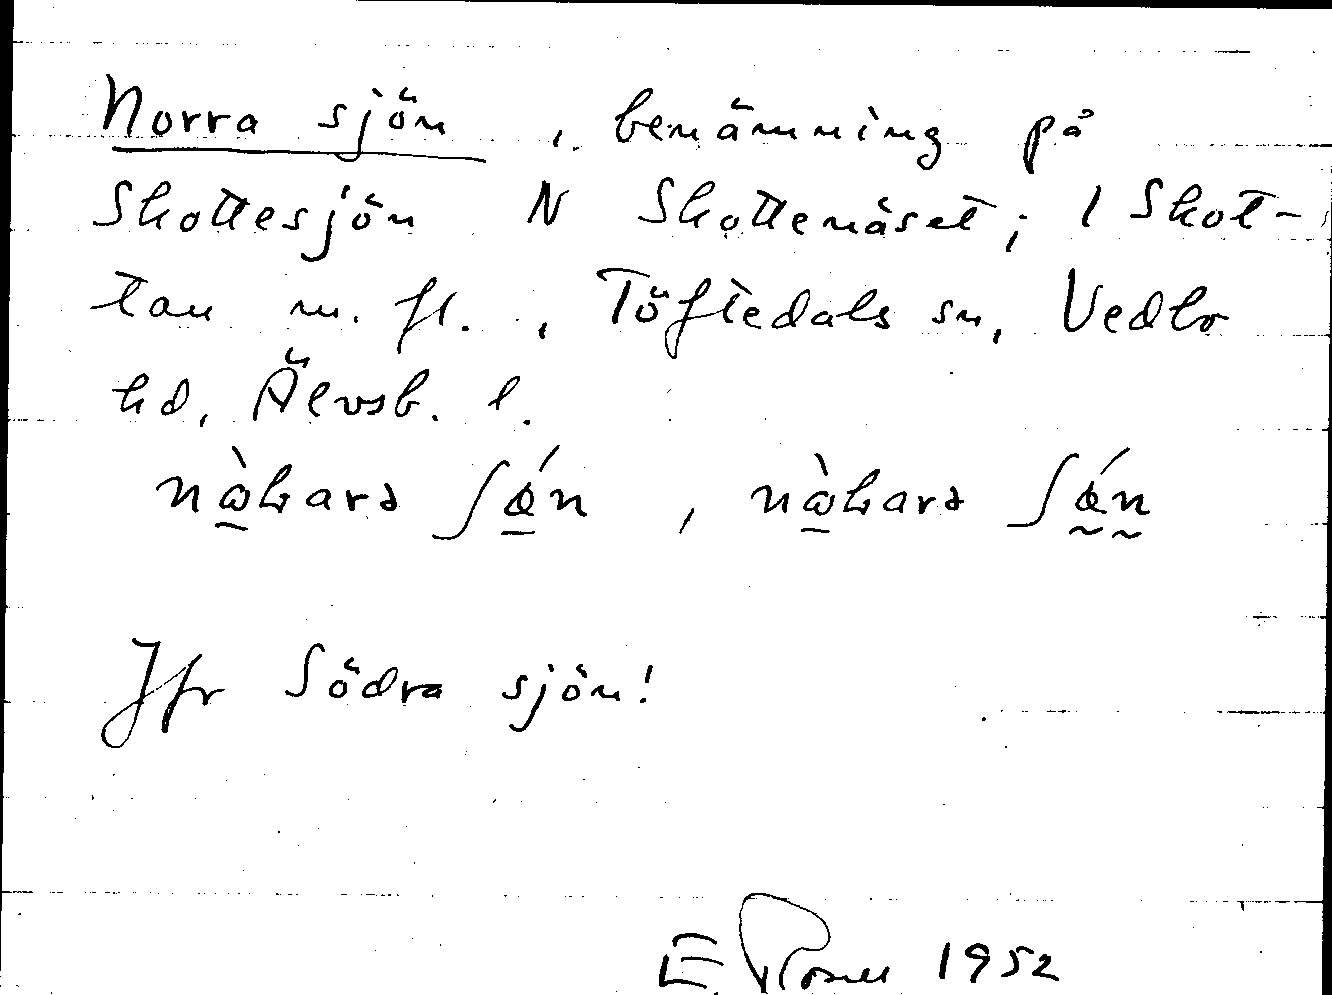 Norra sjön, benämning på
Skottesjön N Skottenäset; 1 Skot-
tan m. fl., Töftedals sn, Vedbo
hd, Älvsb. l.
nὼkarə ʃǿn, nὼkarə ʃǿn
Jfr Södra sjön!
E. 1952